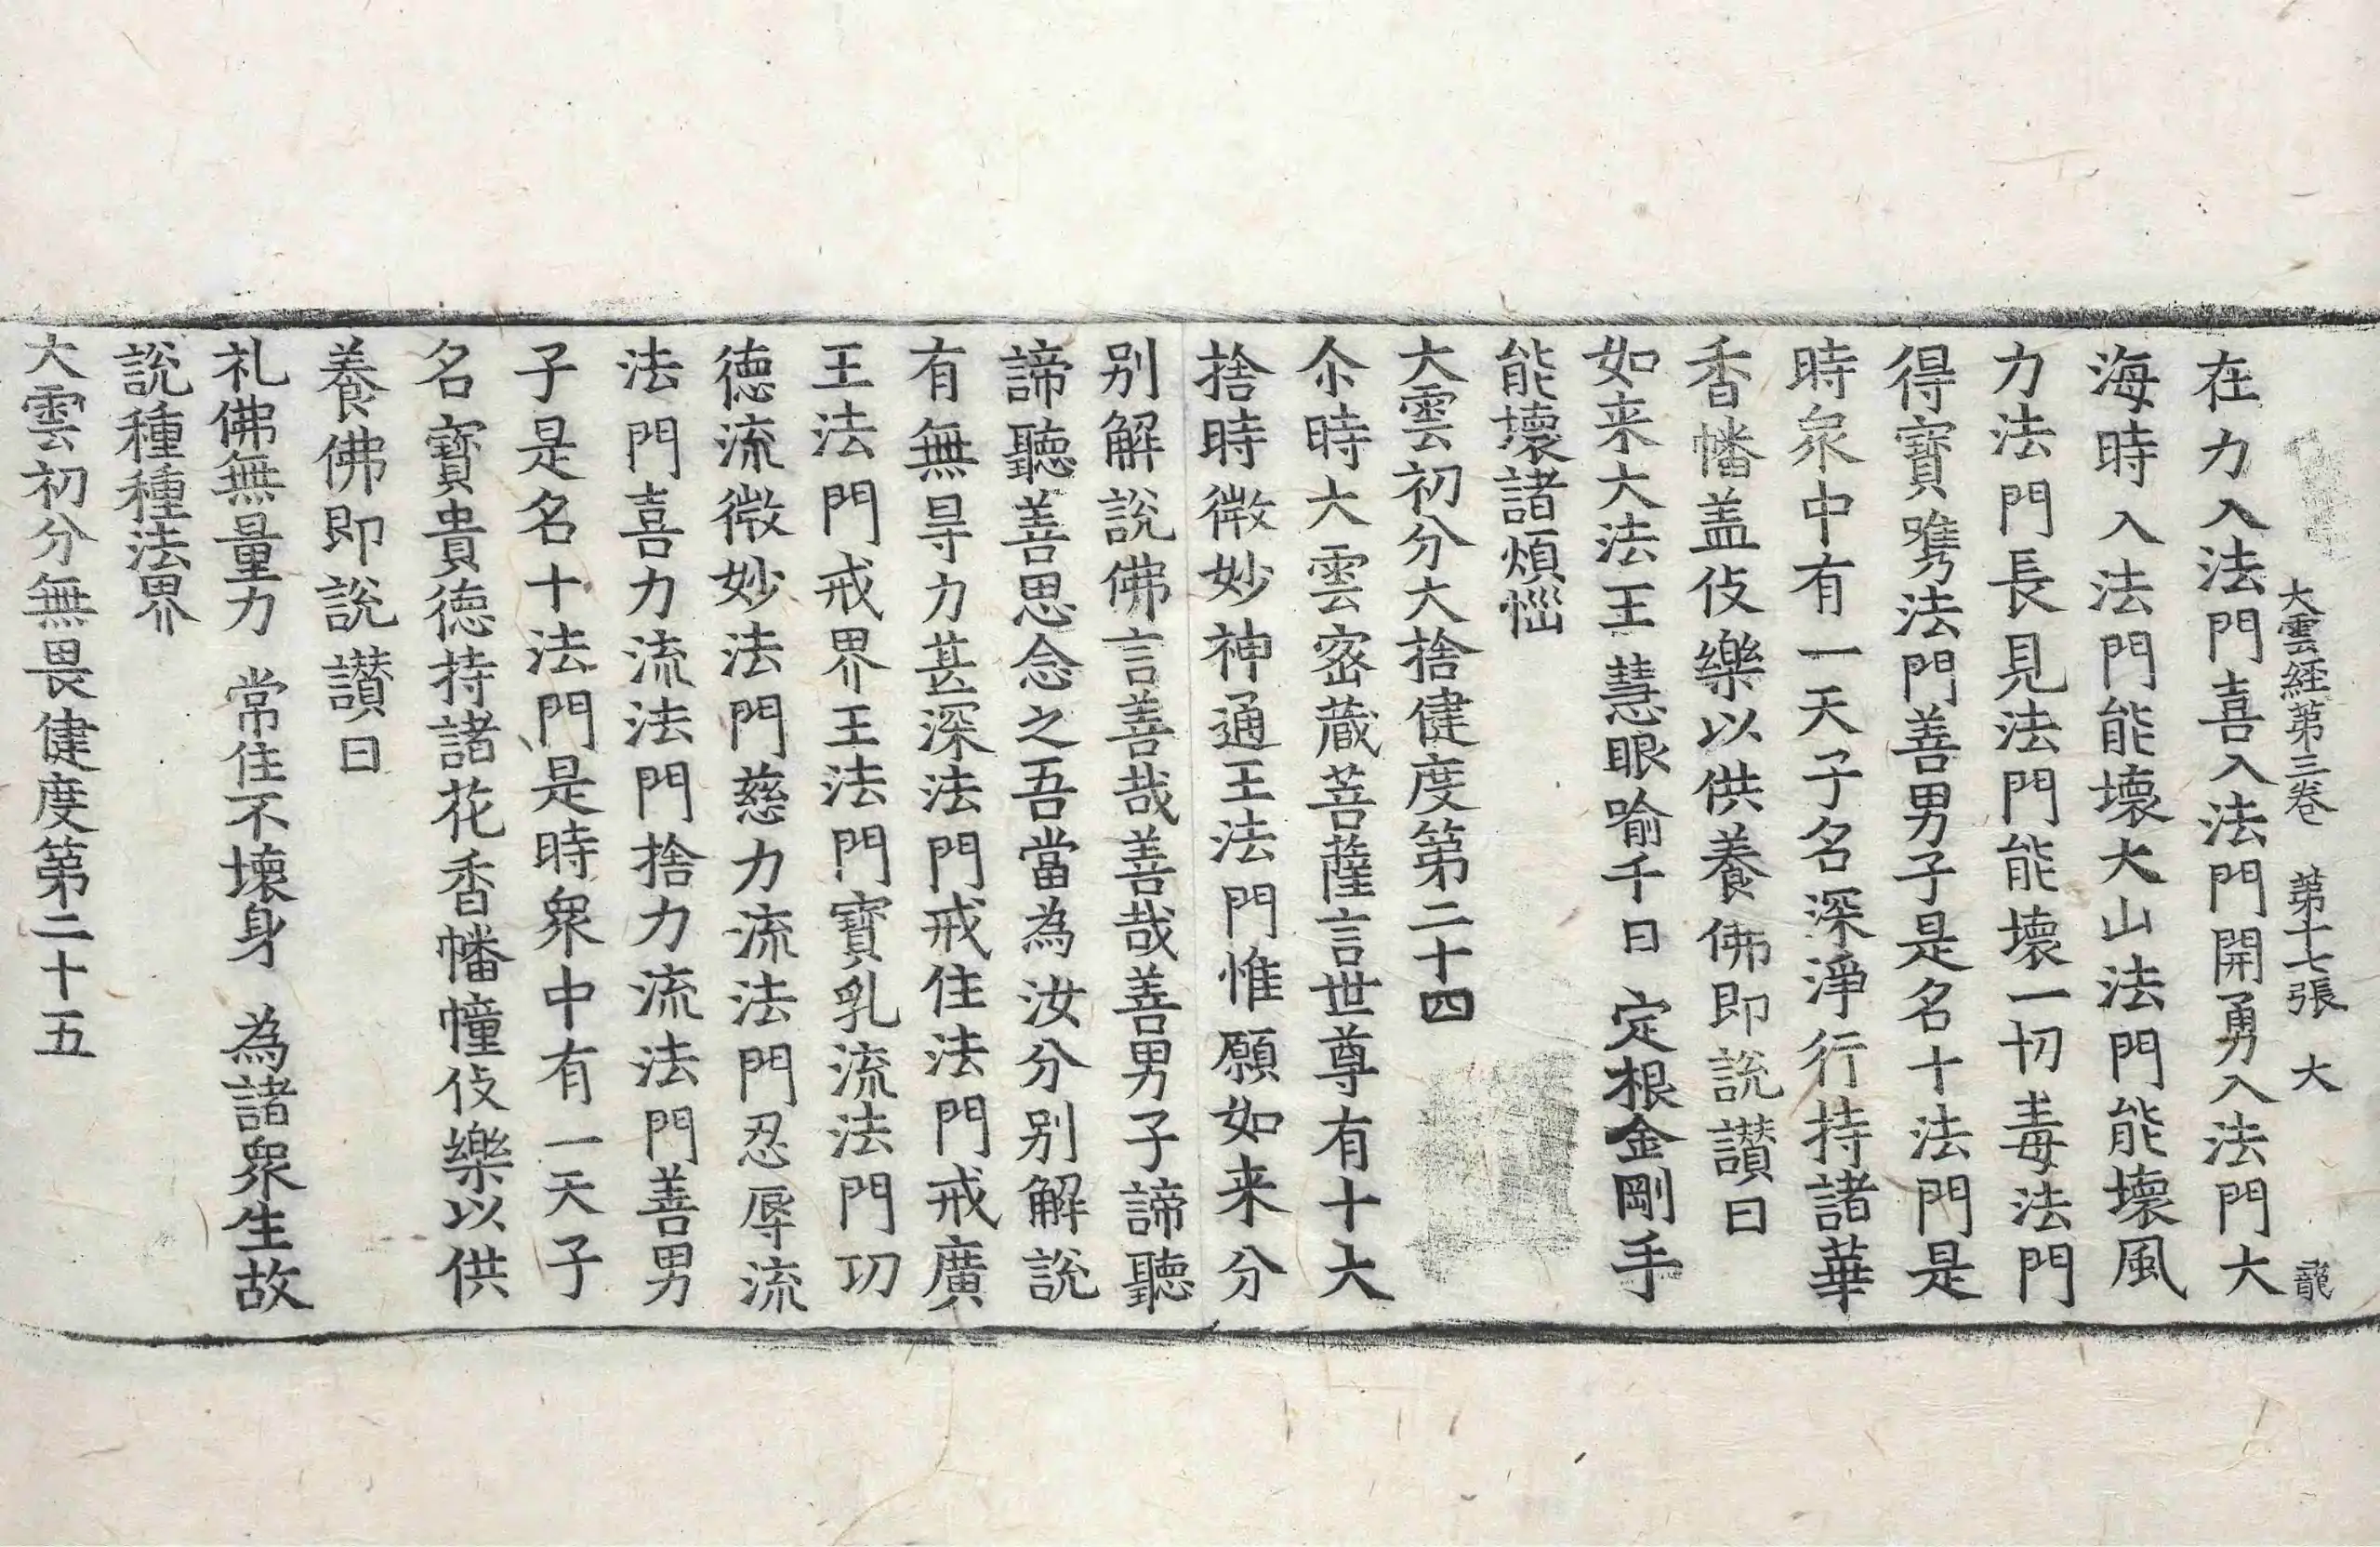 大雲経第三卷 第十七張 大 龍
在力入法門喜入法門開勇入法門大
海時入法門能壞大山法門能壞風
力法門長見法門能壞一切毒法門
得寶㑺法門善男子是名十法門是
時衆中有一天子名深淨行持諸華
香幡盖伎樂以供養佛即說讃曰
如来大法王 慧眼喻千日 定根金剛手
能壞諸煩惱
大雲初分大捨健度第二十四
尒時大雲密蔵菩薩言世尊有十大
捨時微妙神通王法門惟願如来分
别解說佛言善哉善哉善男子諦聽
諦聽善思念之吾當為汝分别解說
有無㝵力甚深法門戒住法門戒廣
王法門戒界王法門寶乳流法門功
德流微妙法門慈力流法門忍辱流
法門喜力流法門捨力流法門善男
子是名十法門是時衆中有一天子
名寶貴德持諸花香幡幢伎樂以供
養佛即說讃曰
礼佛無量力 常住不壞身 為諸衆生故
說種種法界
大雲初分無畏健度第二十五